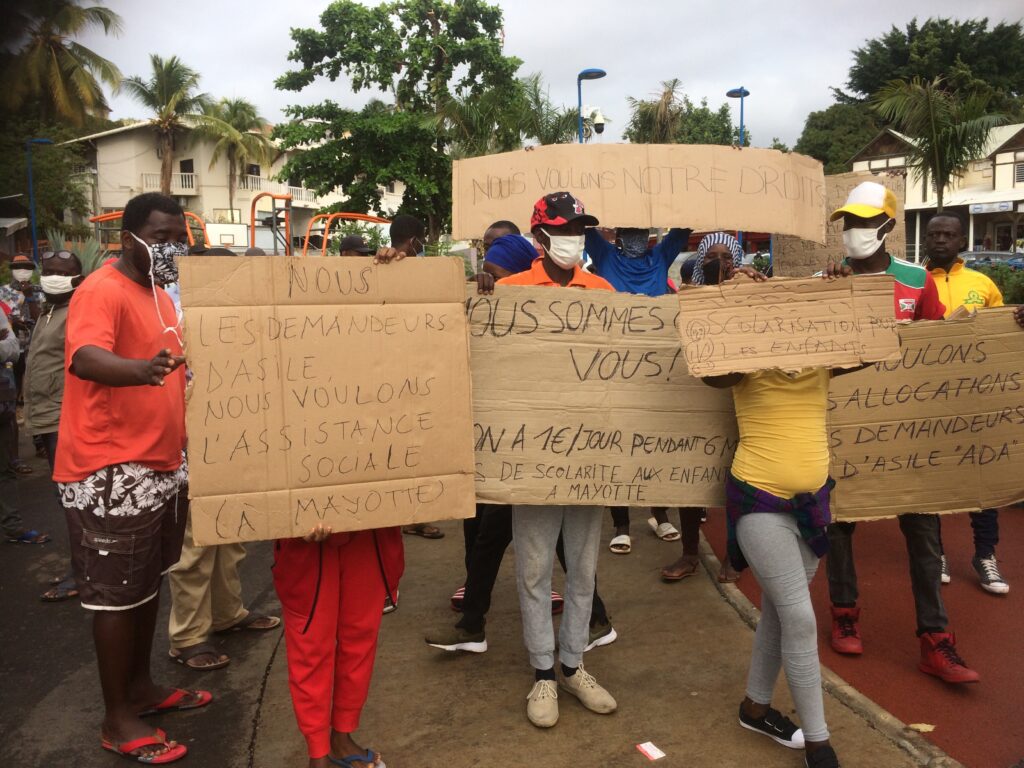 NOUS VOULONS NOTRE DROITS
NOUS
LES DEMANDEURS
D'ASILE,
NOUS VOULONS
L'ASSISTANCE
SOCIALE
(A MAYOTTE)
NOUS SOMMES
VOUS!
ON A 1€/JOUR PENDANT 6
DE SCOLARITE AUX ENFANT
A MAYOTTE
SCOLARISATION
LES ENFANTS
ALLOCATIONS
DEMANDEURS
D'ASILE "ADA"